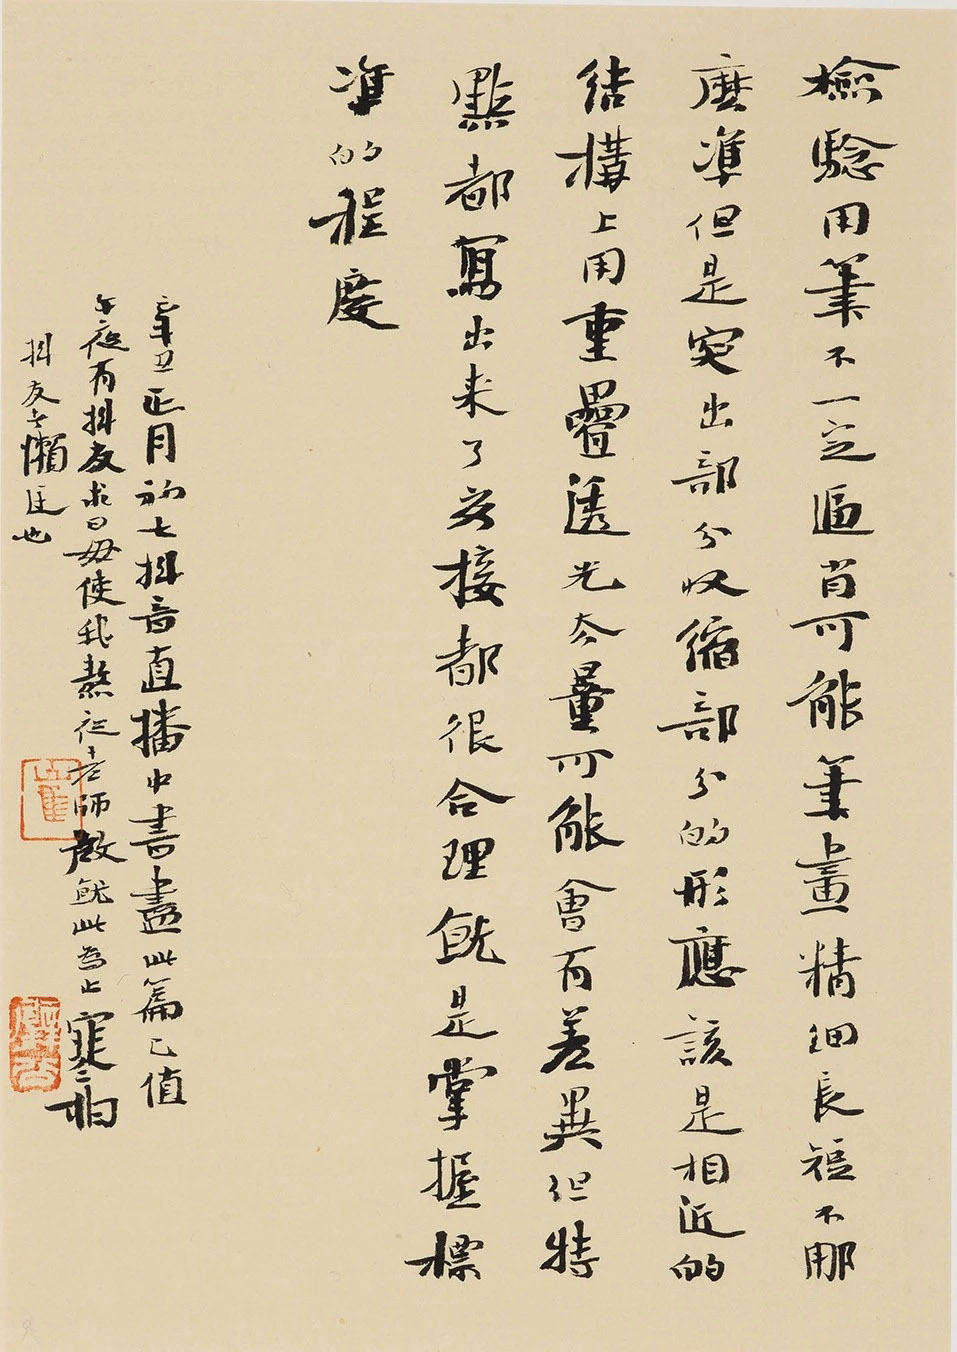 檢驗用筆不一定逼肖可能筆畫精細長短不那
麽準但是突出部分收縮部分的形應該是相近的
結構上用重疊透光參量可能會有差異但特
點都寫出來了安接都很合理既是掌握標
準的程度
辛丑正月初七抖音直播中書盡此篇已值
午夜有抖友求曰毋使我熬夜老師啟就此為止寉
抖友亦懶隹也